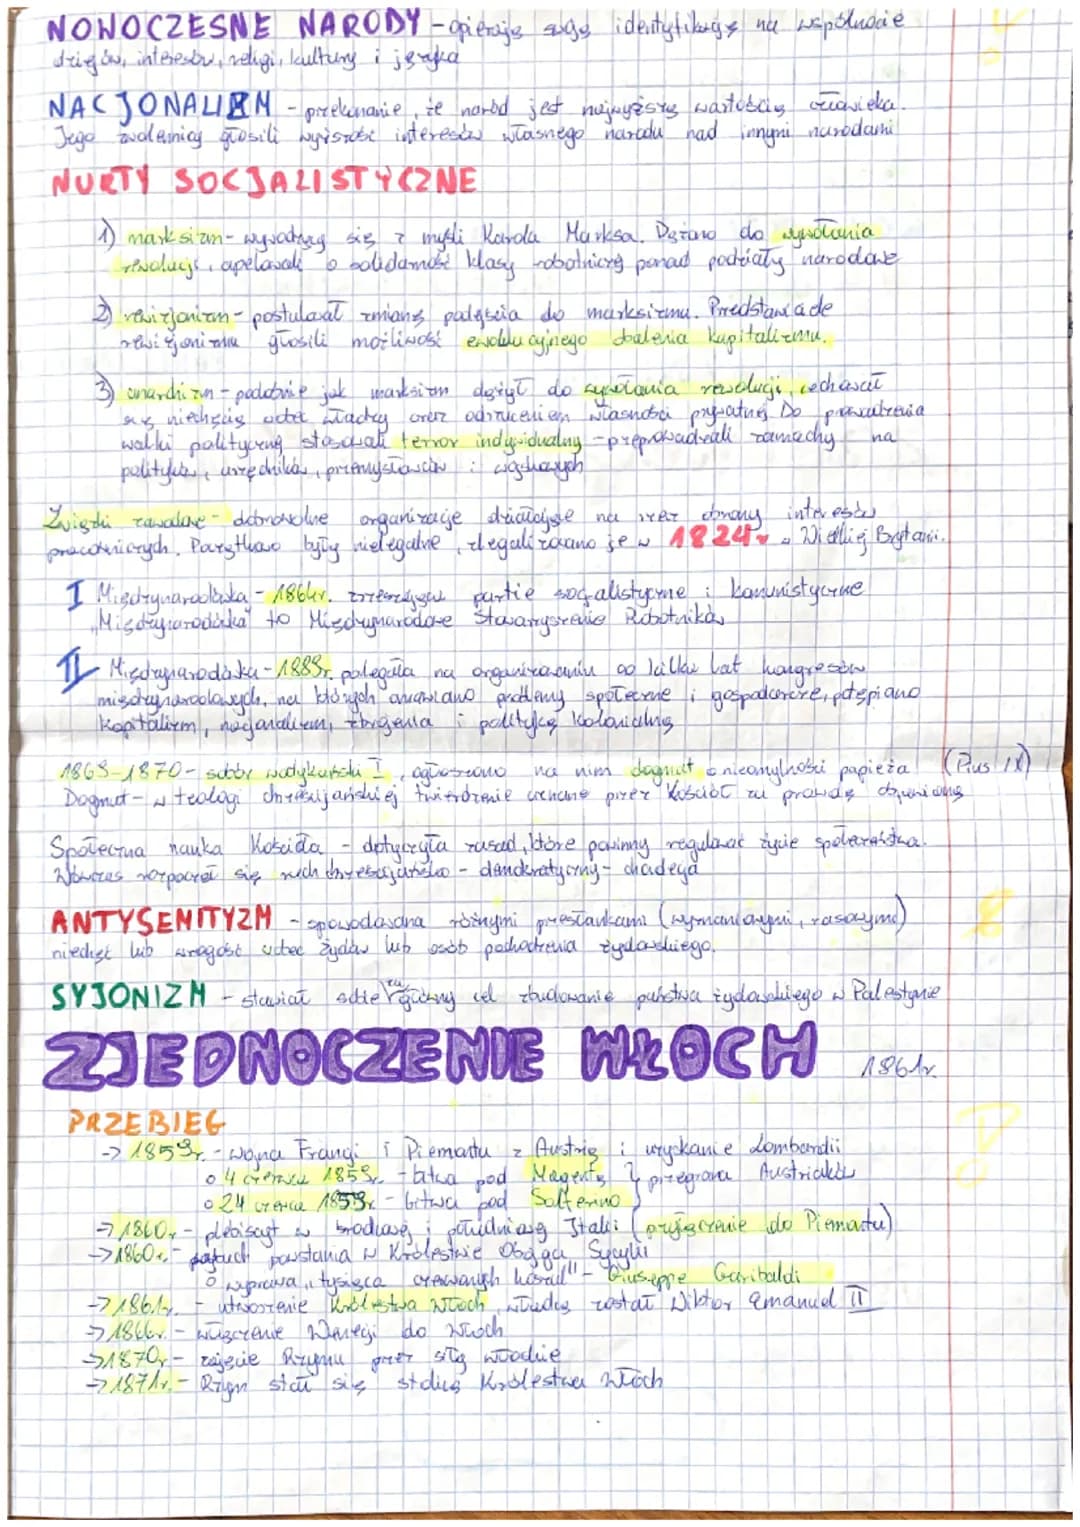 NOWOCZESNE NARODY - opierają swoją identyfikację na wspólnocie
dziejów, interesów, religi, kultury i języka
NACJONALIZM - przekonanie, że naród jest najwyższą wartością człowieka.
Jego zwolennicy głosili wyższość interesów własnego narodu nad innymi narodami
NURTY SOCJALISTYCZNE
1) marksizm - wywodzący się z myśli Karola Marksa. Dążono do wywołania
rewolucji, apelowali o solidarność klasy robotniczej ponad podziały narodowe
2) rewizjonizm - postulował zmianę podejścia do marksizmu. Przedstawiciele
rewizjonizmu głosili możliwość ewolucyjnego obalenia kapitalizmu.
3) anarchizm - podobnie jak marksizm dążył do wywołania rewolucji, cechował
się niechęcią wobec władzy oraz odrzuceniem własności prywatnej Do prowadzenia
walki politycznej stosowali terror indywidualny - przeprowadzali zamachy na
polityków, urzędników, przemysłowców i wojskowych
Związki zawodowe - dobrowolne organizacje działające na rzecz obrony interesów
pracowniczych. Początkowo były nielegalne, zlegalizowano je w 1824r w Wielkiej Brytanii.
I Międzynarodówka - 1864r. zrzeszająca partie socjalistyczne i komunistyczne
"Międzynarodówka" to Międzynarodowe Stowarzyszenie Robotników
II Międzynarodówka - 1889r. polegała na organizowaniu co kilka lat kongresów
międzynarodowych, na których omawiano problemy społeczne i gospodarcze, potępiano
kapitalizm, nacjonalizm, zbrojenia i politykę kolonialną
1869-1870 - sobór watykański I, ogłoszono na nim dogmat o nieomylności papieża (Pius IX)
Dogmat - w teologi chrześcijańskiej twierdzenie uznane przez Kościół za prawdę objawioną
Społeczna nauka Kościoła - dotyczyła zasad, które powinny regulować życie społeczeństwa.
Wówczas rozpoczął się ruch chrześcijańsko - demokratyczny - chadecja
ANTYSEMITYZM - spowodowana różnymi przesłankami (wyznaniowymi, rasowymi)
niechęć lub wrogość wobec żydów lub osób pochodzenia żydowskiego.
SYJONIZM - stawiał sobie za główny cel zbudowanie państwa żydowskiego w Palestynie
ZJEDNOCZENIE WŁOCH 1861r.
PRZEBIEG
-> 1859r. - wojna Francji i Piemontu z Austrią i uzyskanie Lombardii
o 4 czerwca 1859r. - bitwa pod Magentą } przegrana Austriaków
o 24 czerwca 1859r. - bitwa pod Solferino
-> 1860r. - plebiscyt w środkowej i południowej Italii (przyłączenie do Piemontu)
-> 1860r. - wybuch powstania w Królestwie Obojga Sycylii
o wyprawa "tysiąca czerwonych koszul" - Giuseppe Garibaldi
-> 1861r. - utworzenie Królestwa Włoch, władcą został Wiktor Emanuel II
-> 1866r. - włączenie Wenecji do Włoch
-> 1870r. - zajęcie Rzymu przez siły włoskie
-> 1871r. - Rzym stał się stolicą Królestwa Włoch